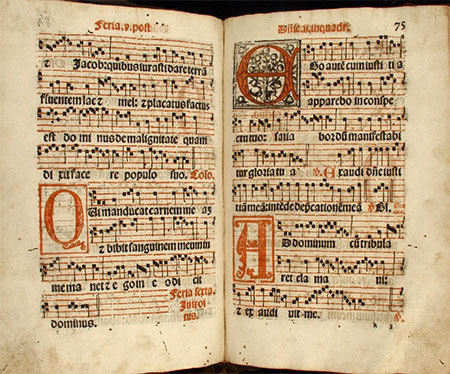 Feria .v. post
⁊ Jacob: quibus iurasti dare terrā
fluentem lac ⁊ mel: ⁊ placatus factus
est do mi nus de malignitate quam
di xit face re populo suo. Cōio.
Qui manducat carnem me aʒ
⁊ bibit sanguinem meum in
me ma net ⁊ e go in e o di cit
dominus.
Feria sexta.
Introi
tus.
75
Ego autē cum iusti ti a
apparebo in conspe
ctu tuo: satia bor dū manifestabi
tur gloria tu a Exaudi dñe iusti
tiā meā: intēde deprecationē meā
Ad dominum cū tribula
rer cla ma ui:
⁊ ex audi uit me.